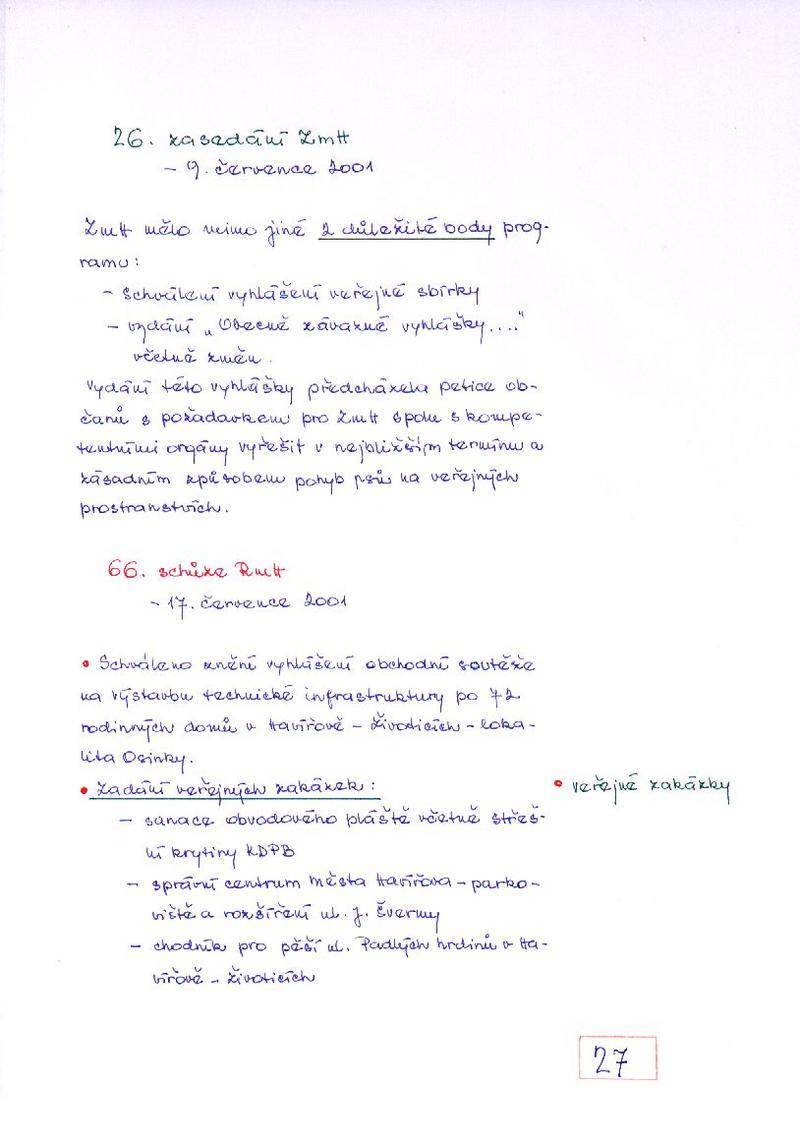 26. zasedání ZmH
- 9. července 2001
ZmH mělo mimo jiné 2 důležité body prog-
ramu:
- Schválení vyhlášení veřejné sbírky
- vydání „Obecně závazné vyhlášky...."
včetně změn.
Vydání této vyhlášky předcházela petice ob-
čanů s požadavkem pro ZmH spolu s kompe-
tentními orgány vyřešit v nejbližším termínu a
zásadním způsobem pohyb psů na veřejných
prostranstvích.
66. schůze RmH
- 17. července 2001
• Schváleno znění vyhlášení obchodní soutěže
na výstavbu technické infrastruktury po 72
rodinných domů v Havířově - Životicích - loka-
lita Osinky.
• Zadání veřejných zakázek:
• veřejné zakázky
- sanace obvodového pláště včetně střeš-
ní krytiny KDPB
- správní centrum města Havířova - parko-
viště a rozšíření ul. J. Švermy
- chodník pro pěší ul. Padlých hrdinů v Ha-
vířově - Životicích
27